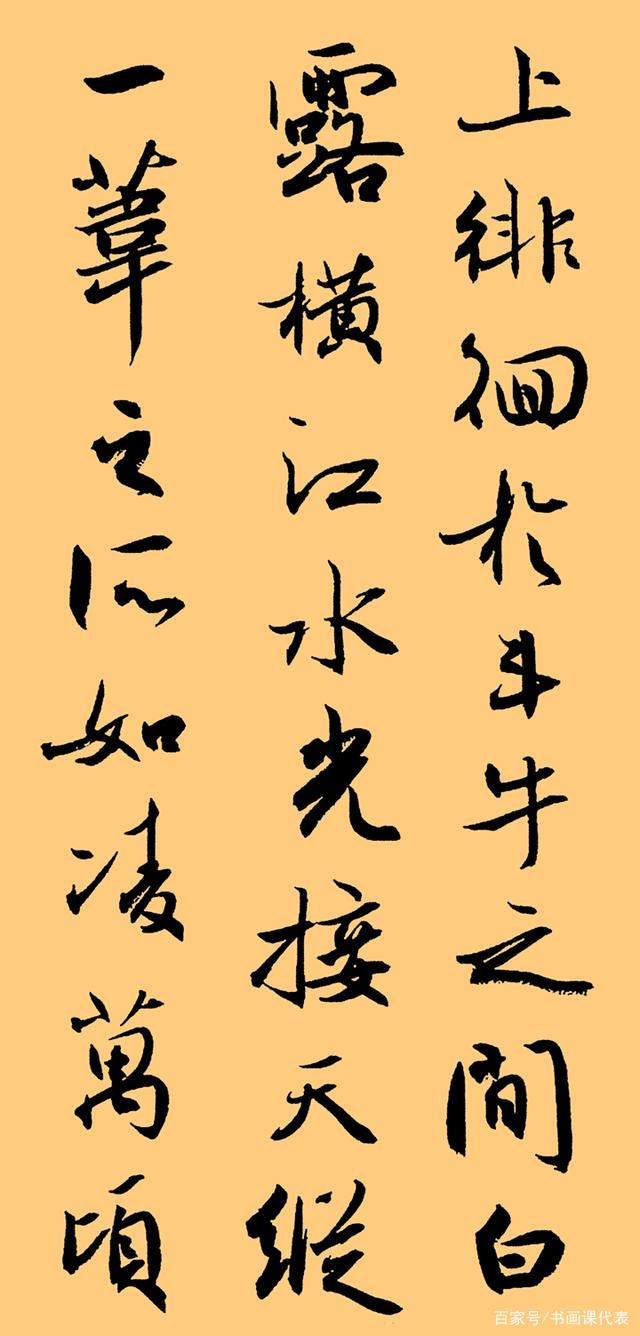 上徘徊於斗牛之間白
露橫江水光接天縱
一葦之所如凌萬頃
百家号/书画课代表